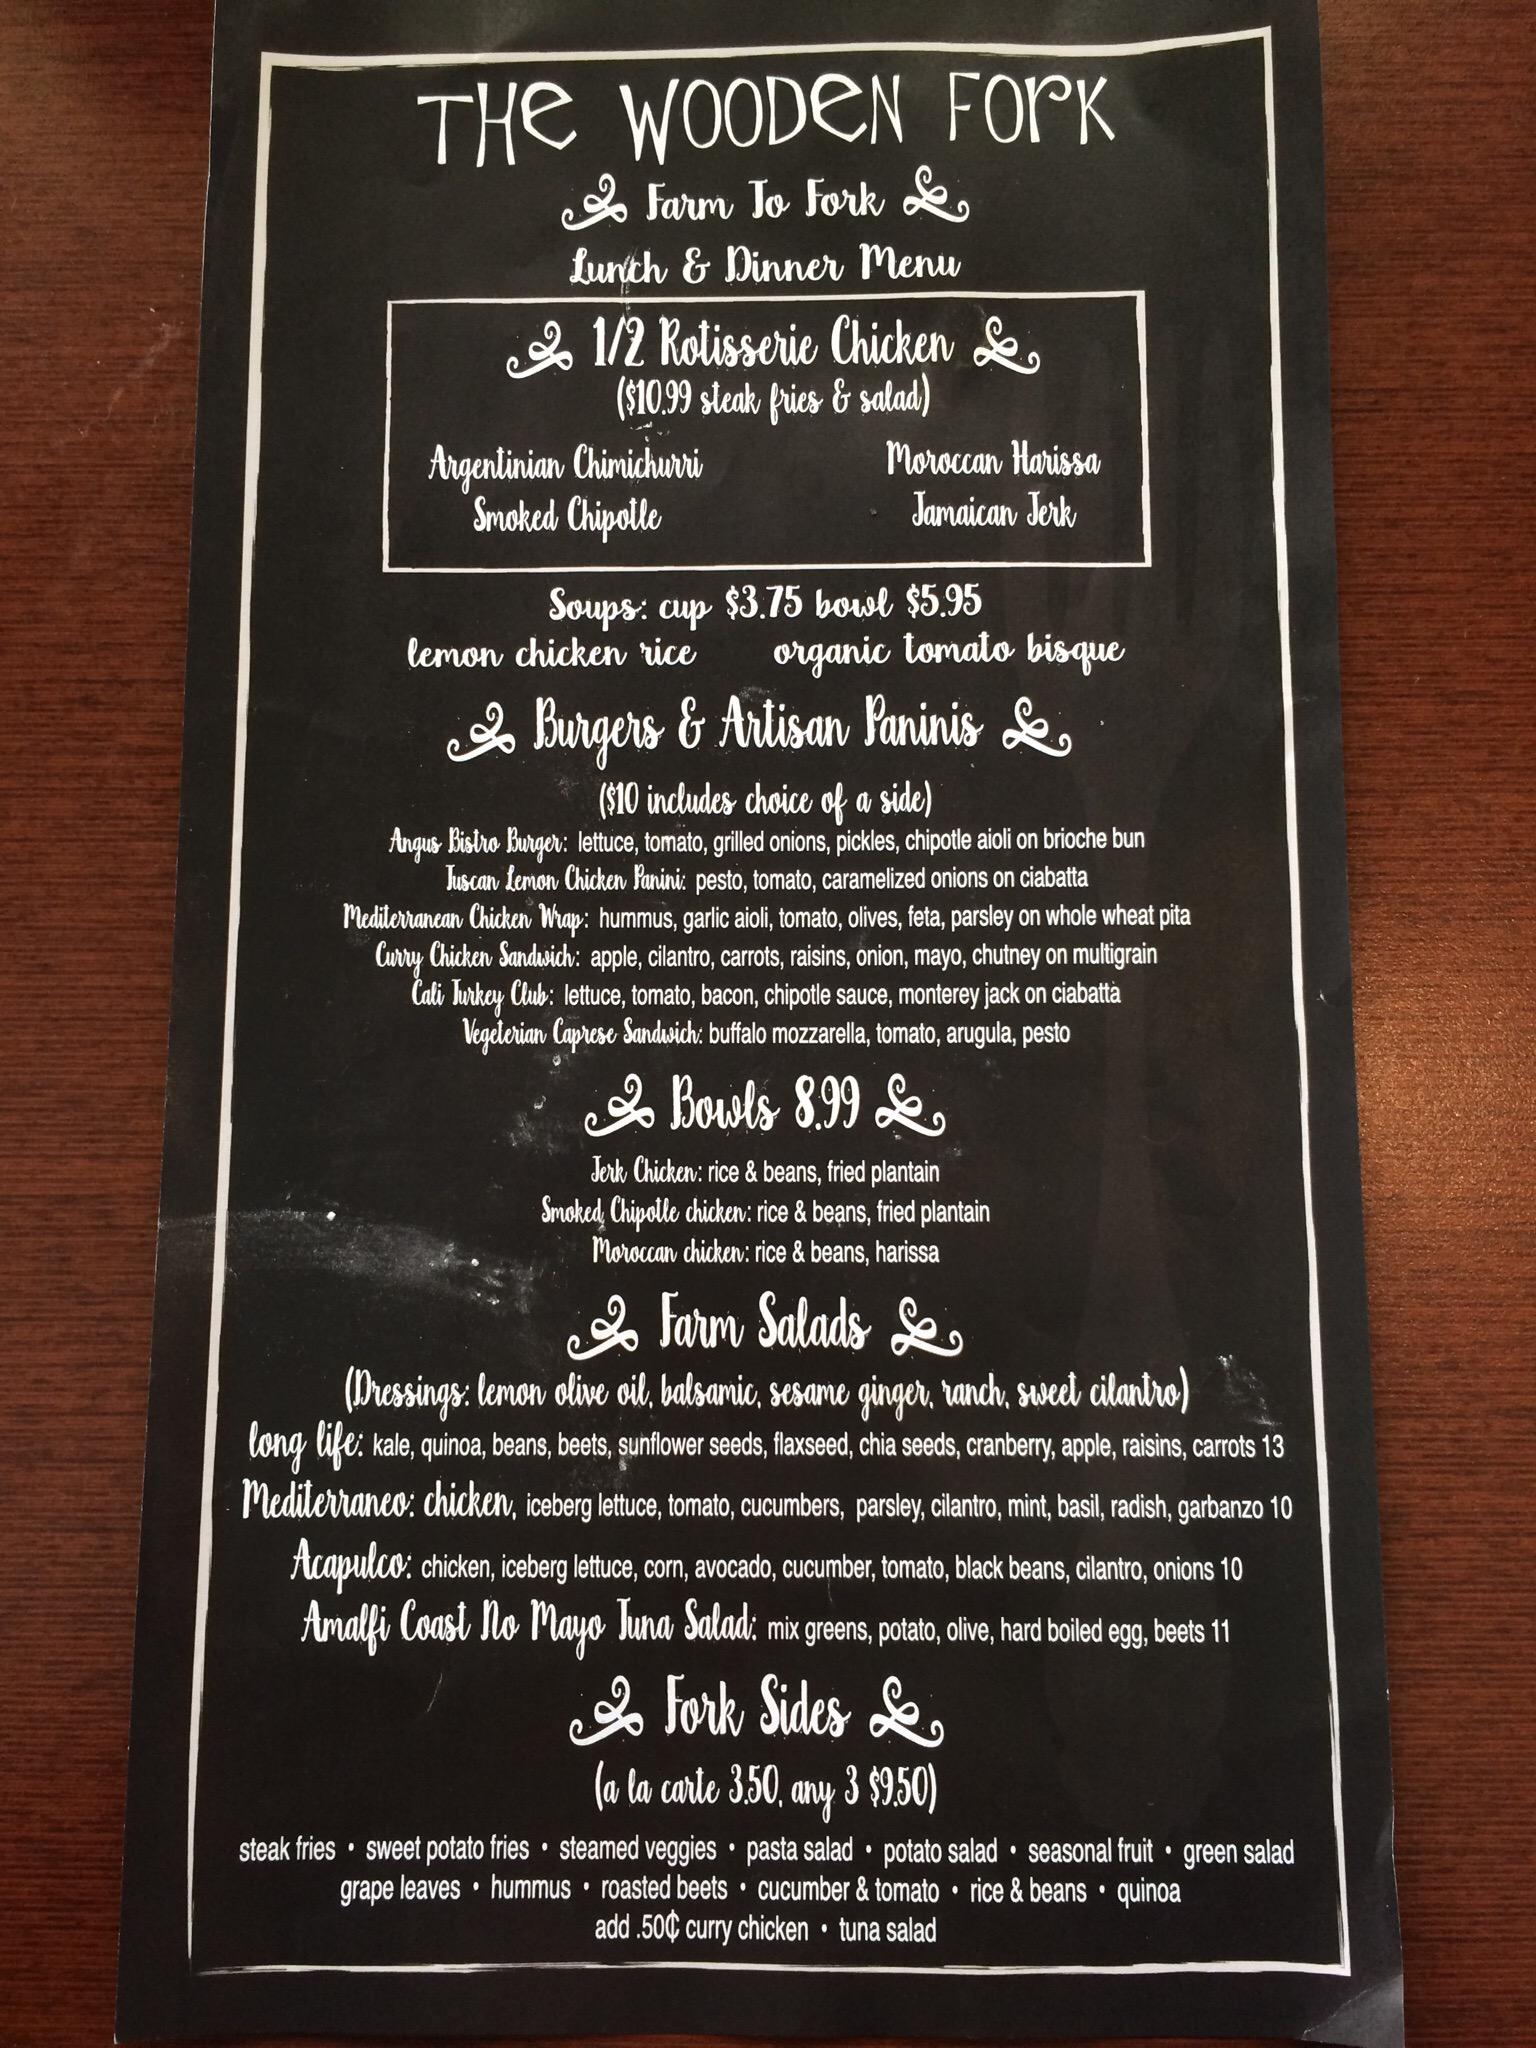 THE WOODEN FORK
Farm To Fork
Lunch & Dinner Menu
1/2 Rotisserie Chicken
($10.99 steak fries & salad)
Argentinian Chimichurri Moroccan Harissa
Smoked Chipotle Jamaican Jerk
Soups: cup $3.75 bowl $5.95
lemon chicken rice organic tomato bisque
Burgers & Artisan Paninis
($10 includes choice of a side)
Angus Bistro Burger: lettuce, tomato, grilled onions, pickles, chipotle aioli on brioche bun
Tuscan Lemon Chicken Panini: pesto, tomato, caramelized onions on ciabatta
Mediterranean Chicken Wrap: hummus, garlic aioli, tomato, olives, feta, parsley on whole wheat pita
Curry Chicken Sandwich: apple, cilantro, carrots, raisins, onion, mayo, chutney on multigrain
Cali Turkey Club: lettuce, tomato, bacon, chipotle sauce, monterey jack on ciabatta
Vegeterian Caprese Sandwich: buffalo mozzarella, tomato, arugula, pesto
Bowls 8.99
Jerk Chicken: rice & beans, fried plantain
Smoked Chipotle chicken: rice & beans, fried plantain
Moroccan chicken: rice & beans, harissa
Farm Salads
(Dressings: lemon olive oil, balsamic, sesame ginger, ranch, sweet cilantro)
long life: kale, quinoa, beans, beets, sunflower seeds, flaxseed, chia seeds, cranberry, apple, raisins, carrots 13
Mediterraneo: chicken, iceberg lettuce, tomato, cucumbers, parsley, cilantro, mint, basil, radish, garbanzo 10
Acapulco: chicken, iceberg lettuce, corn, avocado, cucumber, tomato, black beans, cilantro, onions 10
Amalfi Coast No Mayo Tuna Salad: mix greens, potato, olive, hard boiled egg, beets 11
Fork Sides
(a la carte 3.50, any 3 $9.50)
steak fries • sweet potato fries • steamed veggies • pasta salad • potato salad • seasonal fruit • green salad
grape leaves • hummus • roasted beets • cucumber & tomato • rice & beans • quinoa
add .50₵ curry chicken • tuna salad